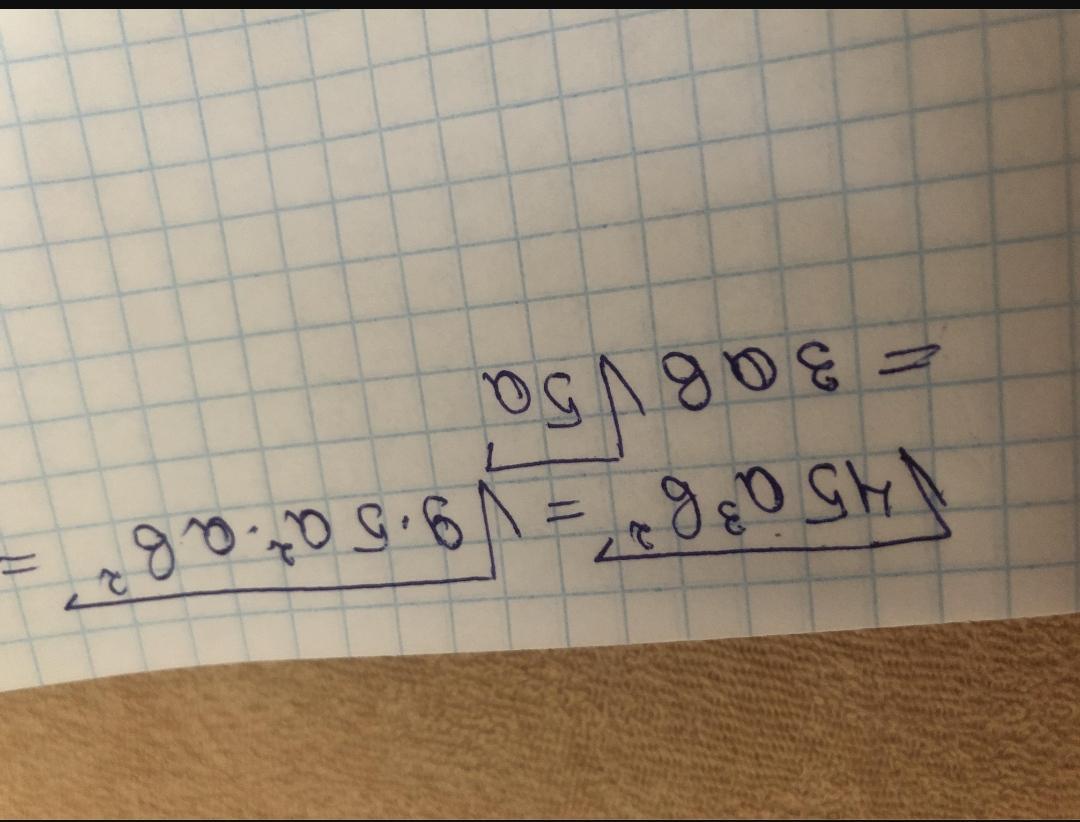 √45a³b² = √9·5a²·ab² =
= 3ab√5a